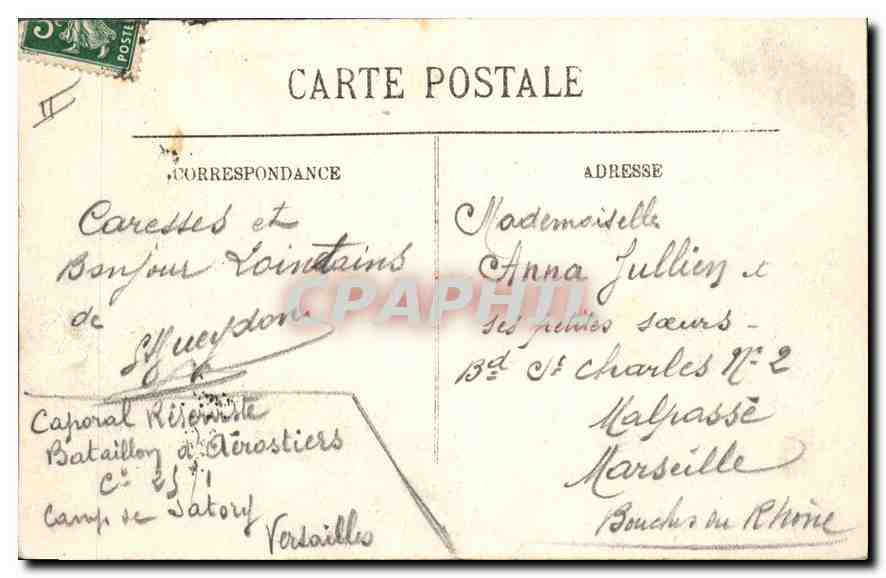 5
POSTES
II
CARTE POSTALE
CORRESPONDANCE
Caresses et
Bonjour Lointains
de
Gueydon
Caporal Réserviste
Bataillon d'Aérostiers
Cie 25/1
Camp de Satory
Versailles
ADRESSE
Mademoiselle
Anna Jullien &
ses petites sœurs -
Bd St Charles No 2
Malpassé
Marseille
Bouches du Rhône
CPAPHIL